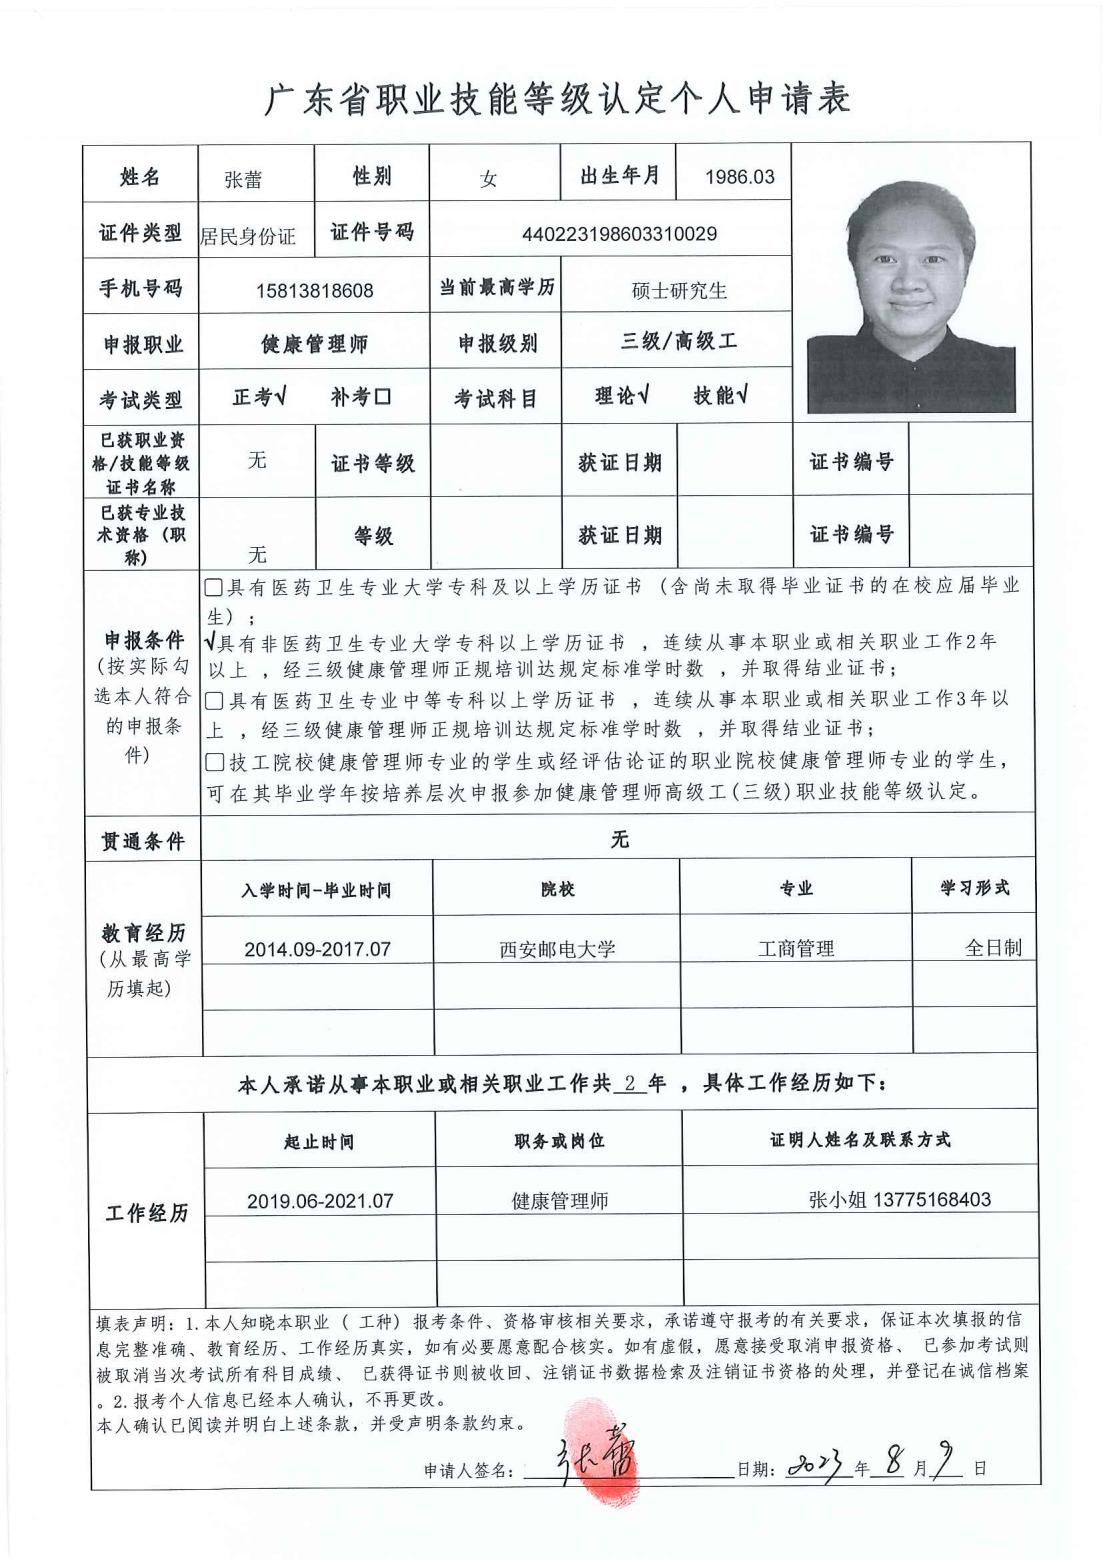 广东省职业技能等级认定个人申请表
姓名 张蕾 性别 女 出生年月 1986.03
证件类型 居民身份证 证件号码 440223198603310029
手机号码 15813818608 当前最高学历 硕士研究生
申报职业 健康管理师 申报级别 三级/高级工
考试类型 正考√ 补考□ 考试科目 理论√ 技能√
已获职业资格/技能等级证书名称 无 证书等级 获证日期 证书编号
已获专业技术资格（职称） 无 等级 获证日期 证书编号
申报条件
(按实际勾选本人符合的申报条件)
□具有医药卫生专业大学专科及以上学历证书（含尚未取得毕业证书的在校应届毕业
生）;
√具有非医药卫生专业大学专科以上学历证书 ，连续从事本职业或相关职业工作2年
以上 ，经三级健康管理师正规培训达规定标准学时数 ，并取得结业证书;
□具有医药卫生专业中等专科以上学历证书 ，连续从事本职业或相关职业工作3年以
上 ，经三级健康管理师正规培训达规定标准学时数 ，并取得结业证书;
□技工院校健康管理师专业的学生或经评估论证的职业院校健康管理师专业的学生,
可在其毕业学年按培养层次申报参加健康管理师高级工(三级)职业技能等级认定。
贯通条件 无
教育经历
(从最高学历填起)
入学时间-毕业时间 院校 专业 学习形式
2014.09-2017.07 西安邮电大学 工商管理 全日制
本人承诺从事本职业或相关职业工作共 2 年 ，具体工作经历如下:
工作经历
起止时间 职务或岗位 证明人姓名及联系方式
2019.06-2021.07 健康管理师 张小姐 13775168403
填表声明: 1.本人知晓本职业（工种）报考条件、资格审核相关要求，承诺遵守报考的有关要求，保证本次填报的信
息完整准确、教育经历、工作经历真实，如有必要愿意配合核实。如有虚假，愿意接受取消申报资格、 已参加考试则
被取消当次考试所有科目成绩、 已获得证书则被收回、注销证书数据检索及注销证书资格的处理，并登记在诚信档案
。2.报考个人信息已经本人确认，不再更改。
本人确认已阅读并明白上述条款，并受声明条款约束。
申请人签名: 张蕾 日期: 2023 年 8 月 9 日